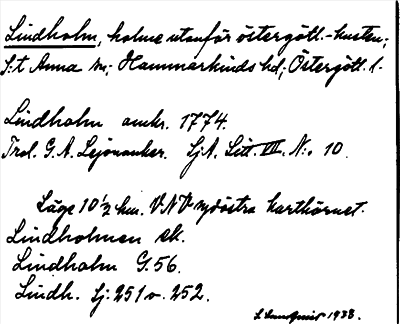 Lindholm, holme utanför östergötl.-kusten;
S:t Anna sn; Hammarkinds hd; Östergötl. l.
Lindholm omkr. 1774.
Trol. G. A. Lejonanker. Sj.A. Litt. III. N:o 10.
Läge 10½ km. VNV sydöstra karthörnet.
Lindholmen ek.
Lindholm G. 56.
Lindh. Sj: 251 o. 252.
1933.